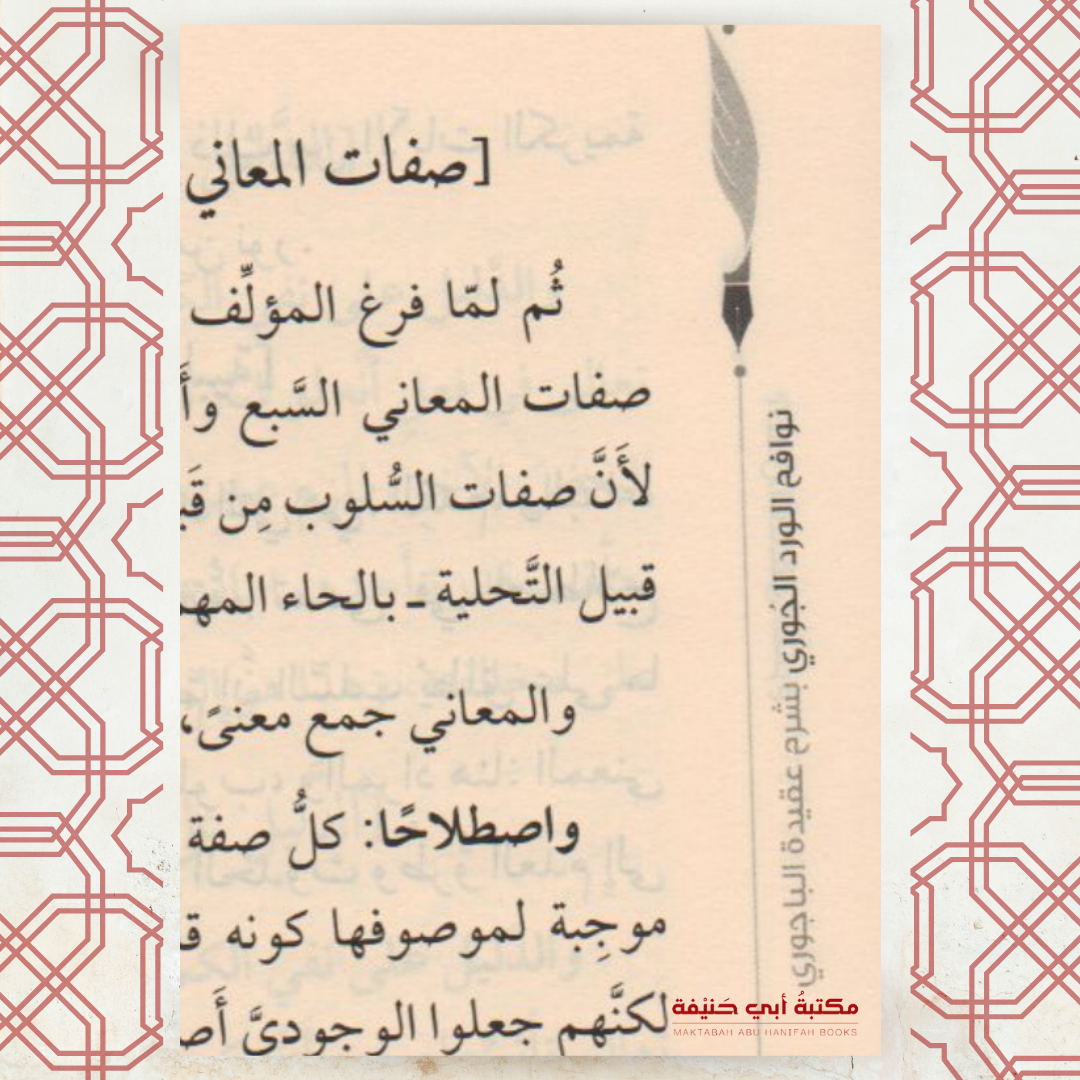 [صفات المعاني
ثُم لمّا فرغ المؤلِّف
صفات المعاني السَّبع
لأَنَّ صفات السُّلوب مِن
قبيل التَّحلية ـ بالحاء
والمعاني جمع معنىً،
واصطلاحًا: كلُّ صفة
موجِبة لموصوفها كونه
لكنَّهم جعلوا الوجوديَّ
نوافح الورد الجُوري بشرح عقيدة الباجوري
مكتبةُ أبي حَنيْفة
MAKTABAH ABU HANIFAH BOOKS